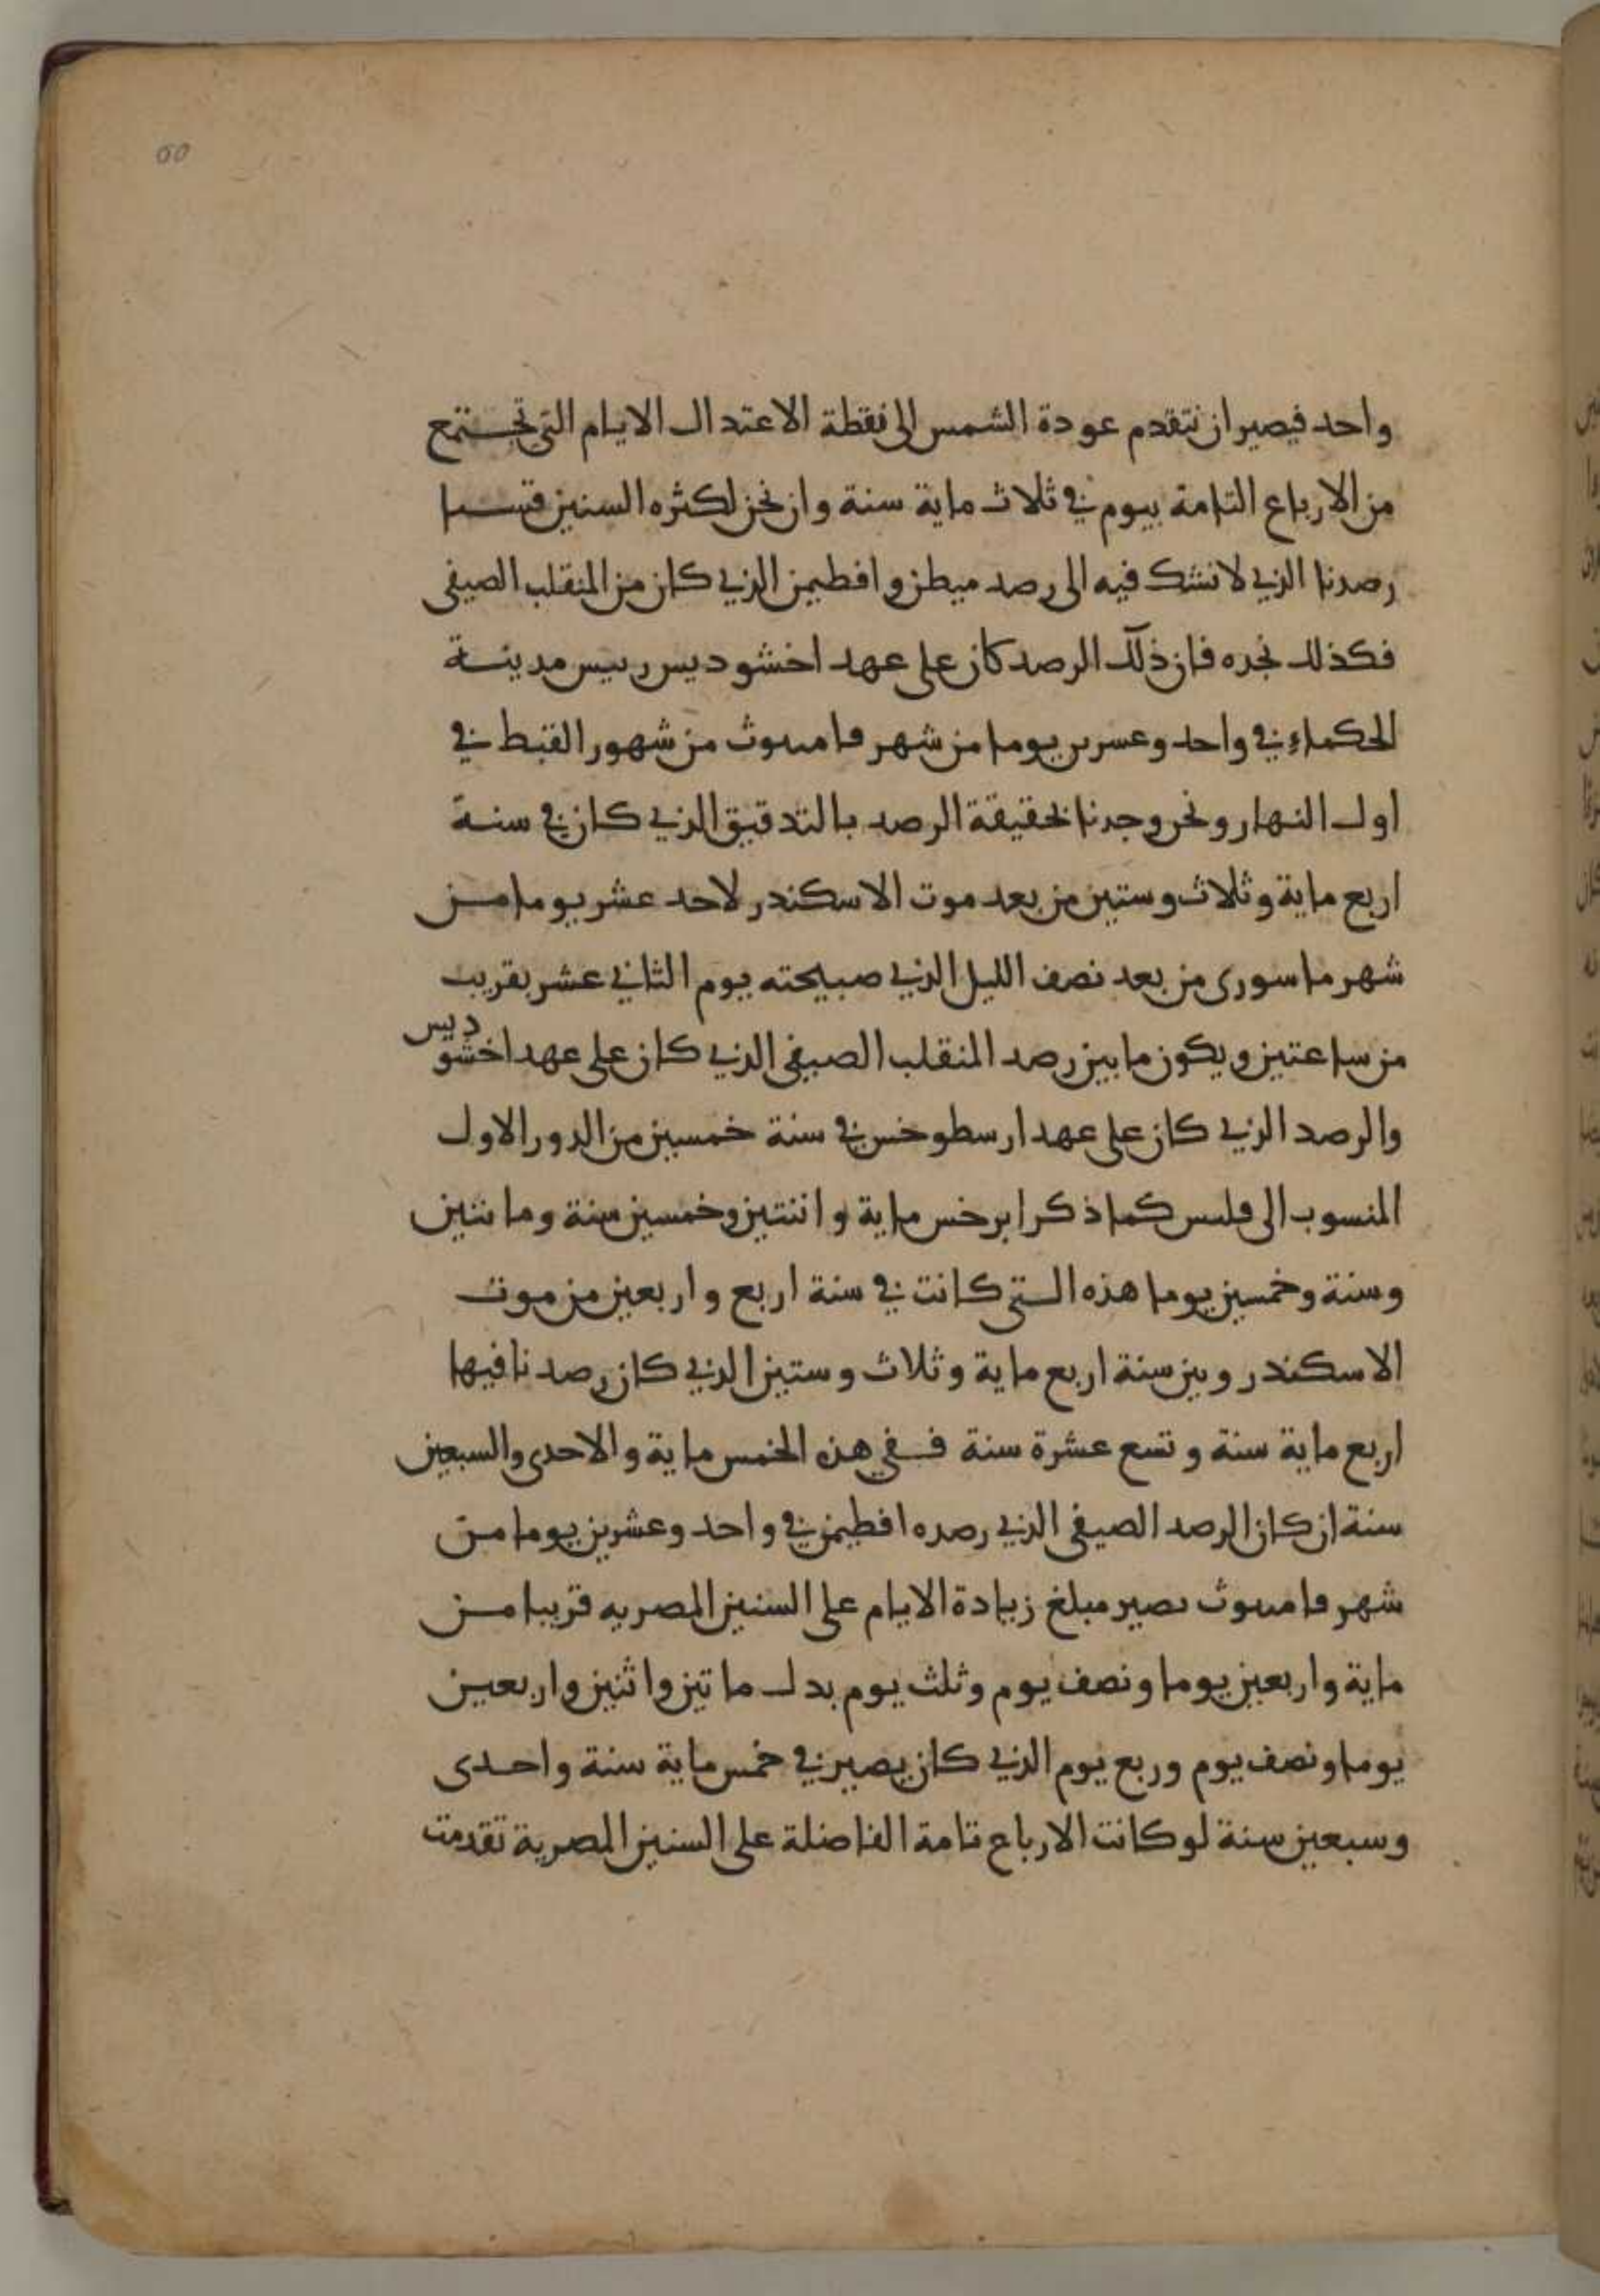 60
واحد فيصير ان تتقدم عودة الشمس الى نقطة الاعتدال الايام التي تجتمع
من الارباع التامة بيوم في ثلاث ماية سنة وان نحن لكثره السنين قسنا
رصدنا الذي لا نشك فيه الى رصد ميطن وافطيمن الذي كان من المنقلب الصيفى
فكذلك نجده فان ذلك الرصد كان على عهد اخشوديس رييس مدينة
الحكماء في واحد وعسرىں يوما من شهر ڡامىىوث من شهور القبط في
اول النهار ونحن وجدنا بحقيقة الرصد بالتدقيق الذي كان في سنة
اربع ماية وثلاث وستين من بعد موت الاسكندر لاحد عشر يوما من
شهر ماسورى من بعد نصف الليل الذي صبيحته يوم الثاني عشر بقريب
من ساعتين ويكون ما بين رصد المنقلب الصيفي الذي كان على عهد اخشوديس
والرصد الذي كان على عهد ارسطوخس في سنة خمسين من الدور الاول
المنسوب الى ڡلىس كما ذكر ابرخس ماية واثنتين وخمسين سنة ومائتين
وستة وخمسين يوما هذه التي كانت في سنة اربع واربعين من موت
الاسكندر وبين سنة اربع ماية وثلاث وستين الذي كان رصدنا فيها
اربع ماية سنة وتسع عشرة سنة ففي هذه الخمس ماية والاحدى والسبعين
سنة ان كان الرصد الصيفي الذي رصده افطيمن في واحد وعشرين يوما من
شهر ڡامىىوث ىصير مبلغ زيادة الايام على السنين المصريه قريبا من
ماية واربعين يوما ونصف يوم وثلث يوم بدل ماتين واثنين واربعين
يوما ونصف يوم وربع يوم الذي كان يصير في خمس ماية سنة واحدى
وسبعين سنة لو كانت الارباع تامة الفاضلة على السنين المصرية تقدمت